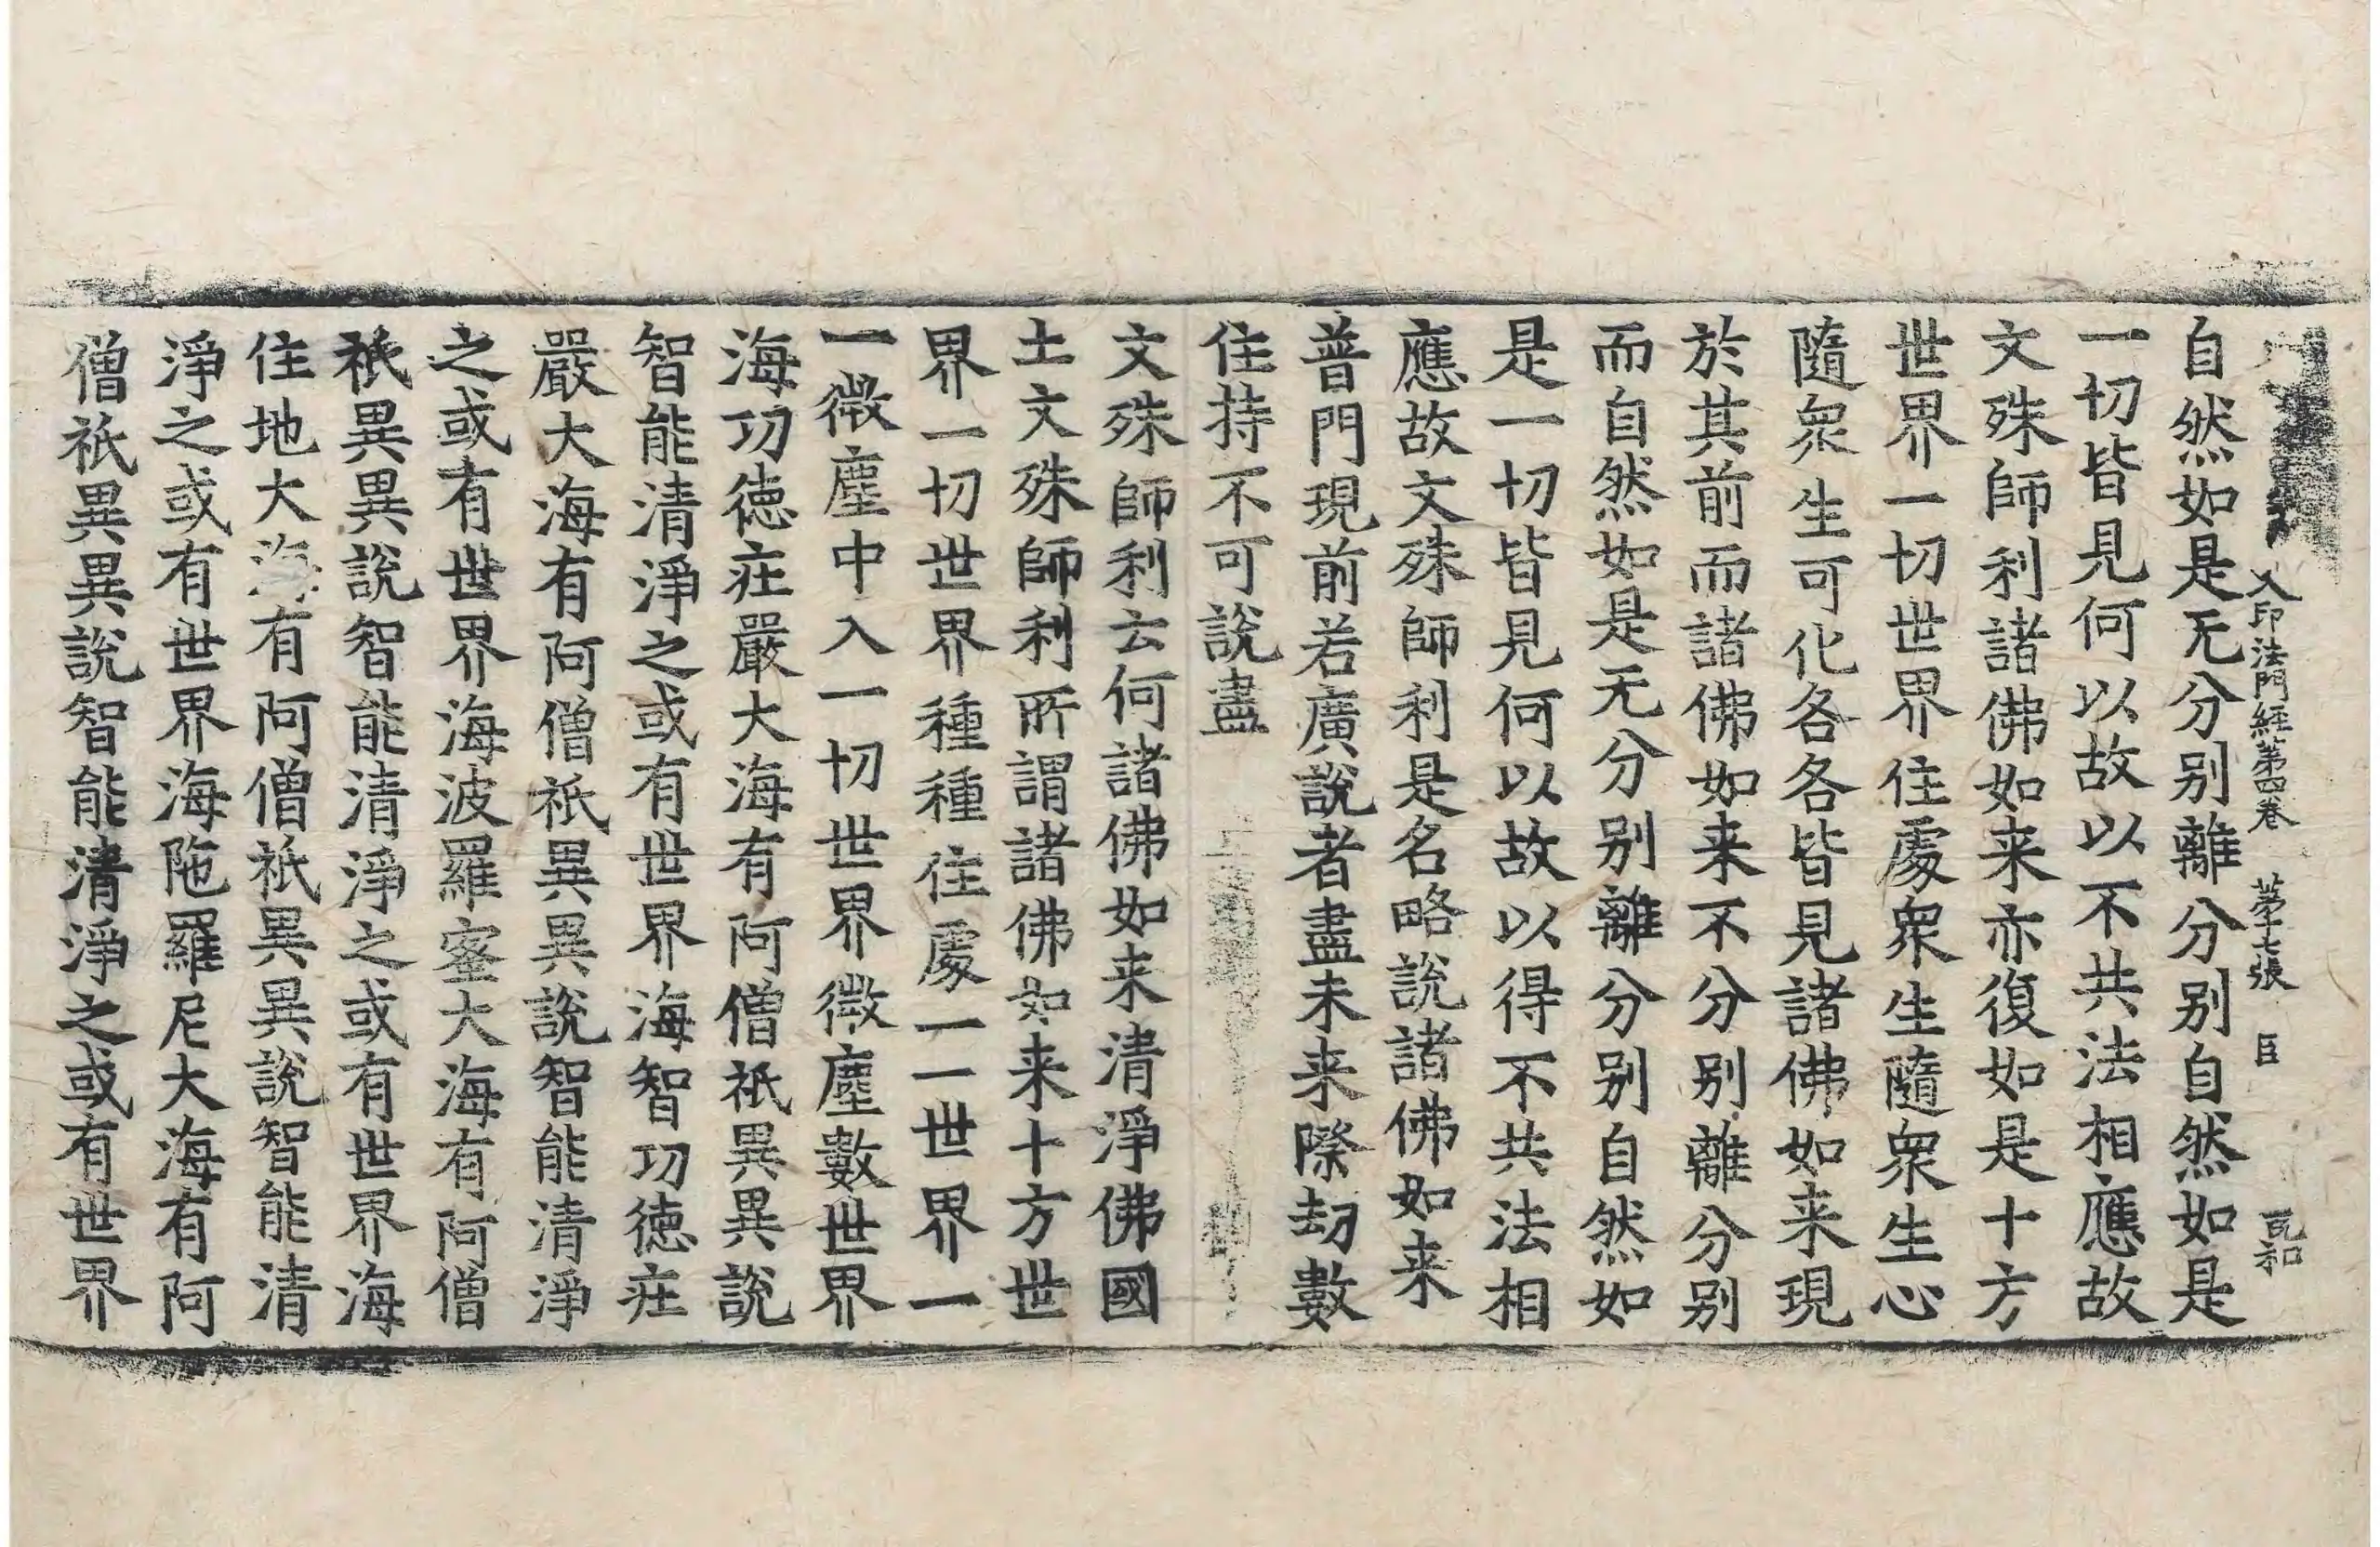 入印法門經第四卷 第十七張 臣 冦和
自然如是无分别離分别自然如是
一切皆見何以故以不共法相應故
文殊師利諸佛如来亦復如是十方
世界一切世界住處衆生隨衆生心
隨衆生可化各各皆見諸佛如来現
於其前而諸佛如来不分别離分别
而自然如是无分别離分别自然如
是一切皆見何以故以得不共法相
應故文殊師利是名略說諸佛如来
普門現前若廣說者盡未来際劫數
住持不可說盡
文殊師利云何諸佛如来清淨佛國
土文殊師利所謂諸佛如来十方世
界一切世界種種住處一一世界一
一微塵中入一切世界微塵數世界
海功徳莊嚴大海有阿僧祇異異說
智能清淨之或有世界海智功徳莊
嚴大海有阿僧祇異異說智能清淨
之或有世界海波羅蜜大海有阿僧
祇異異說智能清淨之或有世界海
住地大海有阿僧祇異異說智能清
淨之或有世界海陁羅尼大海有阿
僧祇異異說智能清淨之或有世界